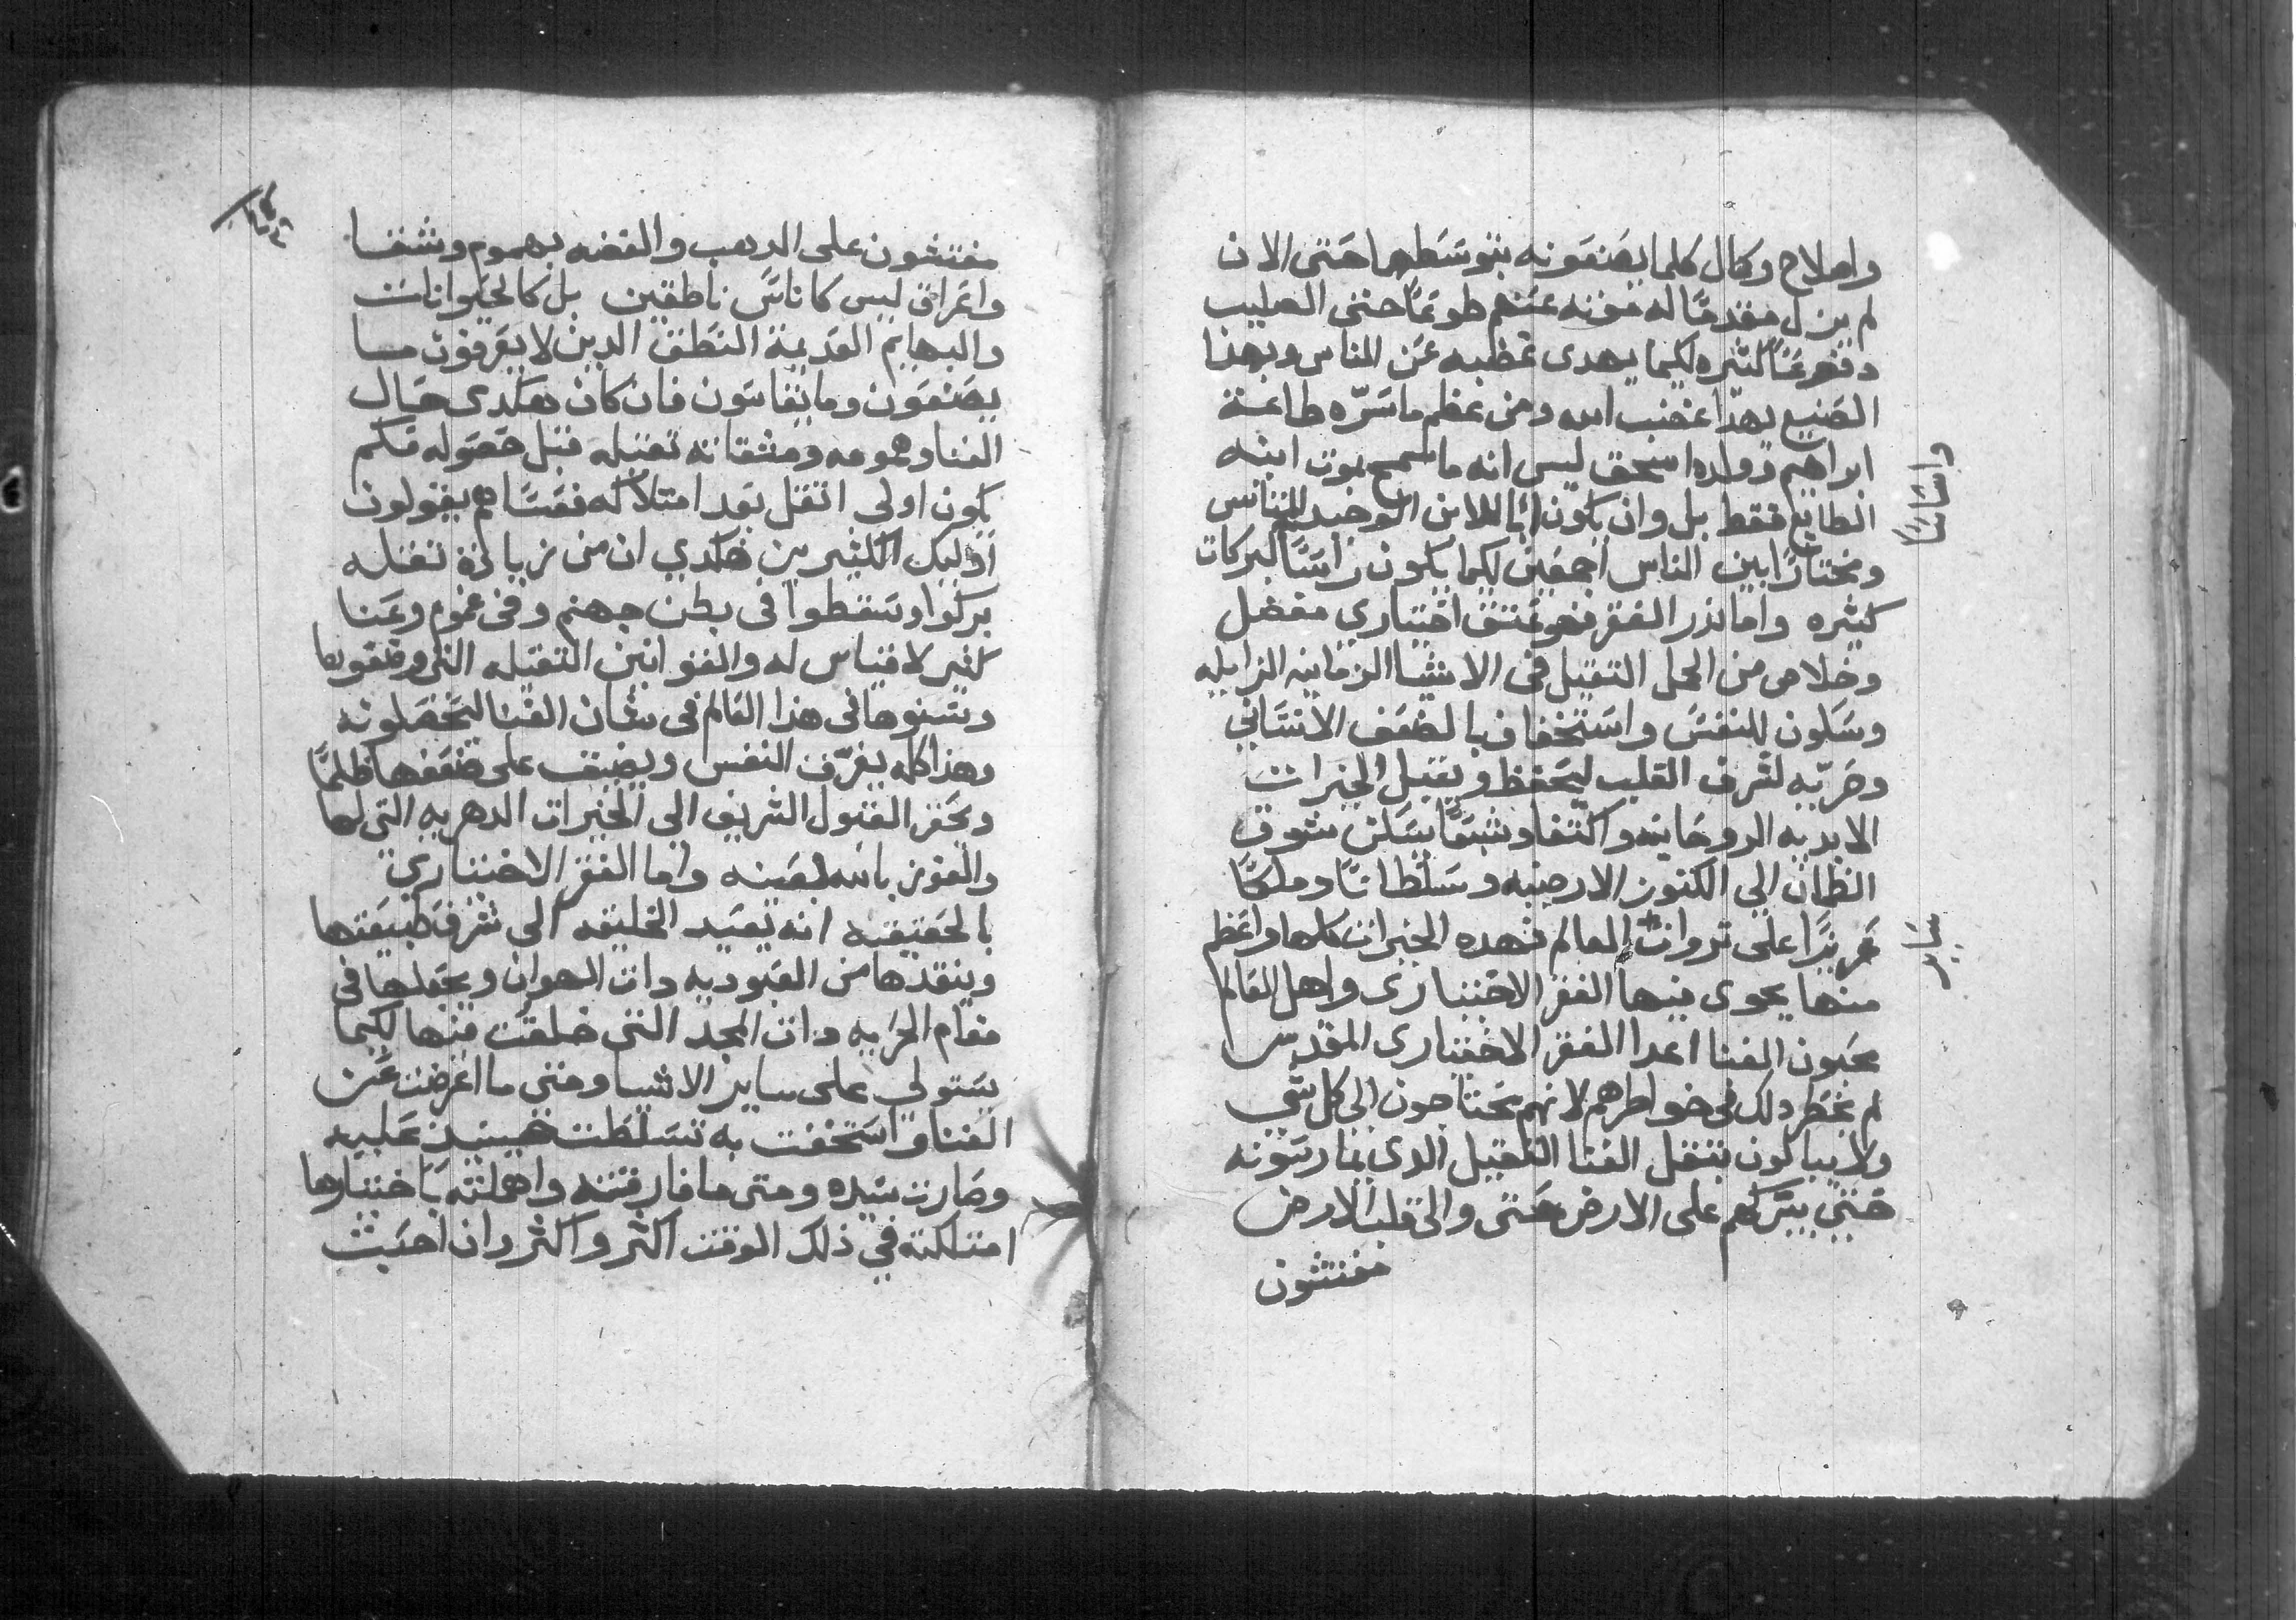 واصلاح وكال كلما يصنعونه بتوسطها حتى الان
لم يزل مقدمًا له موته عنهم طوعًا حتى الصليب
دفوعًا كثيره لكيما يهدى غظبه عن الناس وبهذا
الصنيع يهدا غضب الله ومن عظم ما سرّه طاعة
ابراهيم وولده اسحق ليس انه ما سمح بموت ابنه
الطايع فقط بل وان يكون ابا للابن الوحيد للناس
واساسًا
ومختارًا بين الناس اجمعين لكيما يكون راسًا لبركات
كثيره واما نذر الفقر فهو عتق اختياري مفضل
وخلاص من الحمل الثقيل في الاشيا الزمانيه الزايله
وسكون للنفس واستخفاف بالضعف الانساني
وحريّه لشرف القلب ليحفظ ويقبل الخيرات
الابديه الروحانيه واكتفا وشبعًا يسكن شوق
الظمان الي الكنوز الارضيه وسلطانًا وملكًا
عزيزًا على ثروات العالم فهده الخيرات كلها واعظم
ساير
منها يحوى فيها الفقر الاختيارى واهل العالم
محبون الغنا اعدا الفقر الاختيارى المقدس
لم يخطر دلك في خواطرهم لانهم يحتاجون الي كل شي
ولا يبالون بثقل الغنا الثقيل الدي يمارسونه
حتي يتركهم على الارض حتى والى قلب الارض
مفتشون
مفتشون على الدهب والفضه بهموم وشقا
واعراق ليس كاناس ناطقين بل كالحيوانات
والبهايم العديمة النطق الدين لا يعرفون مــا
يصنعون وما يقاسون فان كان هكدى حال
الغنا وهمومه ومشقاته ثقيله قبل حصوله فكم
يكون اولي اثقل بعد امتلاكه فقساهم يقولون
اوليك الكثيرين هكدي ان من زيادة ثقله
بركوا وسقطوا في بطن جهنم وفي غموم وعنا
كثير لا قياس له والقوانين الثقيله التي وضعوها
وسنوها في هذا العالم في شان الغنا ليحصلونه
وهذا كله يغرّف النفس ويضيق على ضعفها ظلمًا
ويحقر القبول الشريف الى الخيرات الدهريه التي لها
والفوز بالله بعينه واما الفقر الاختياري
بالحقيقه انه يعيد الخليقه الى شرف طبيعتها
وينقدها من العبوديه دات الهوان ويجعلها في
مقام الحريه دات المجد التي خلقت منها لكيما
يستولي على ساير الاشيا ومتى ما اعرضت عن
الغنا واستخفت به تسلطت حينيذ عليه
وصارت سيده ومتى ما فارقته واهملته باختيارها
امتلكته في ذلك الوقت اكثر واكثر وان احبت